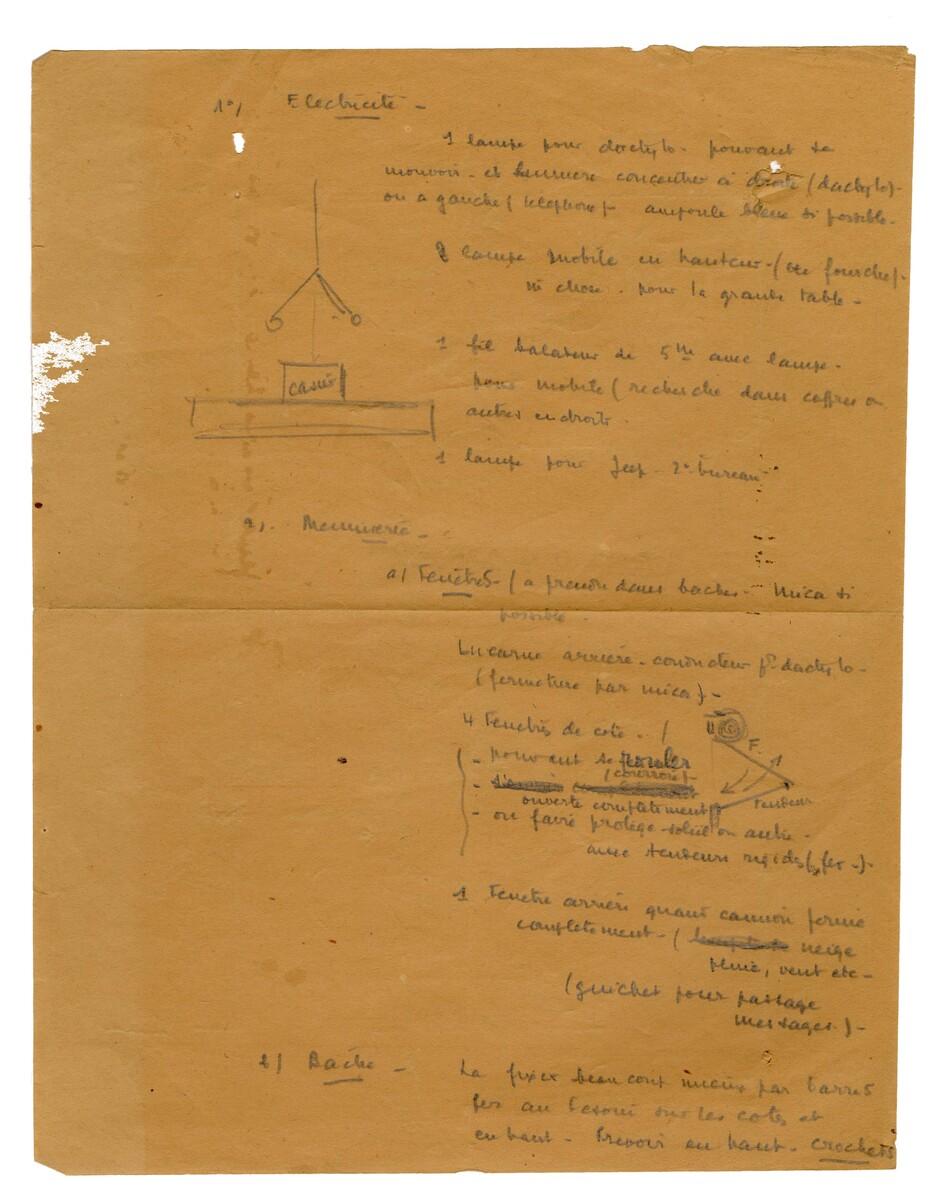 1°/ Electricité -
1 lampe pour dactylo - pouvant se
mouvoir - et lumière concentrer à droite (dactylo)-
ou à gauche (téléphone) - ampoule bleue si possible -
lampe mobile en hauteur - ( fourche) -
chose - pour la grande table -
1 fil baladeur de 5m avec lampe -
pour mobile (recherche dans coffres ou
autres endroits.
1 lampe pour Jeep - 2e bureau
casier
2) - Menuiserie -
a/ Fenêtres - (à prendre dans baches - Mica si
possible -
Lucarne arrière - conducteur pr dactylo -
(fermeture par mica) -
4 Fenêtres de côté - /
- pouvant se rouler
(courroie) -
ouverte complètement
- ou faire protège-soleil ou autre -
avec tendeurs rigides (fer -) -
F.
Tendeur
1 Fenêtre arrière quand camion fermé
complètement - ( neige
pluie, vent etc -
(guichet pour passage
messages.) -
b/ Bache -
La fixer beaucoup mieux par barres
fer au besoin sur les cotés et
en haut - Prévoir en haut - crochets